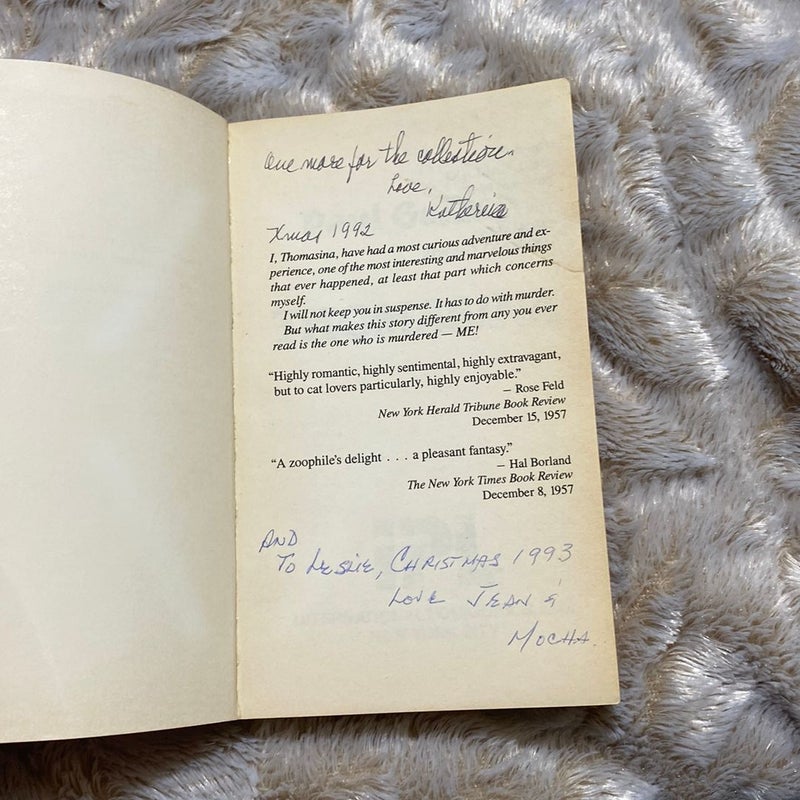 One more for the collection.
Love,
Katherine
Xmas 1992
I, Thomasina, have had a most curious adventure and ex-
perience, one of the most interesting and marvelous things
that ever happened, at least that part which concerns
myself.
I will not keep you in suspense. It has to do with murder.
But what makes this story different from any you ever
read is the one who is murdered — ME!
“Highly romantic, highly sentimental, highly extravagant,
but to cat lovers particularly, highly enjoyable.”
— Rose Feld
New York Herald Tribune Book Review
December 15, 1957
“A zoophile's delight . . . a pleasant fantasy.”
— Hal Borland
The New York Times Book Review
December 8, 1957
AND
TO LESLIE, CHRISTMAS 1993
LOVE JEAN &
MOCHA.